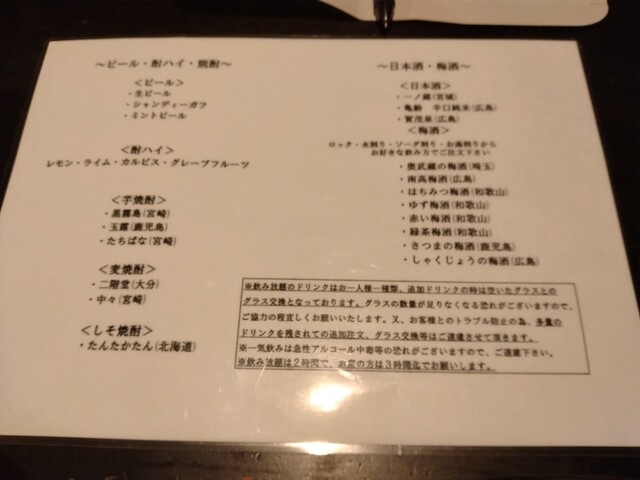 ～ビール・酎ハイ・焼酎～
＜ビール＞
・生ビール
・シャンディーガフ
・ミントビール
＜酎ハイ＞
レモン・ライム・カルピス・グレープフルーツ
＜芋焼酎＞
・黒霧島(宮崎)
・玉露(鹿児島)
・たちばな(宮崎)
＜麦焼酎＞
・二階堂(大分)
・中々(宮崎)
＜しそ焼酎＞
・たんたかたん(北海道)
～日本酒・梅酒～
＜日本酒＞
・一ノ蔵(宮城)
・亀齢　辛口純米(広島)
・賀茂泉(広島)
＜梅酒＞
ロック・水割り・ソーダ割り・お湯割りから
お好きな飲み方でご注文下さい
・奥武蔵の梅酒(埼玉)
・南高梅酒(広島)
・はちみつ梅酒(和歌山)
・ゆず梅酒(和歌山)
・赤い梅酒(和歌山)
・緑茶梅酒(和歌山)
・さつまの梅酒(鹿児島)
・しゃくじょうの梅酒(広島)
※飲み放題のドリンクはお一人様一種類、追加ドリンクの時は空いたグラスとの
グラス交換となっております。グラスの数量が足りなくなる恐れがございますので、
ご協力の程宜しくお願いいたします。又、お客様とのトラブル防止の為、多量の
ドリンクを残されての追加注文、グラス交換等はご遠慮させて頂きます。
※一気飲みは急性アルコール中毒等の恐れがございますので、ご遠慮下さい。
※飲み放題は２時間で、お席の方は３時間迄でお願いします。